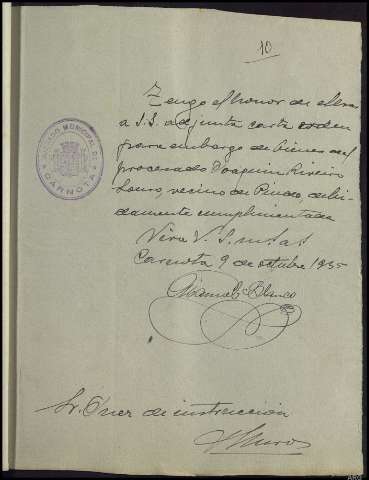 10
Tengo el honor de elevar
a S.S. adjunta carta orden
para embargo de bienes del
procesado Joaquin Riveiro
Louro, vecino de Pindo, debi-
damente cumplimentada
Carnota 9 de octubre 1935
Manuel Blanco
JUZGADO MUNICIPAL DE
CARNOTA
Sr. Juez de instrucción
Muros